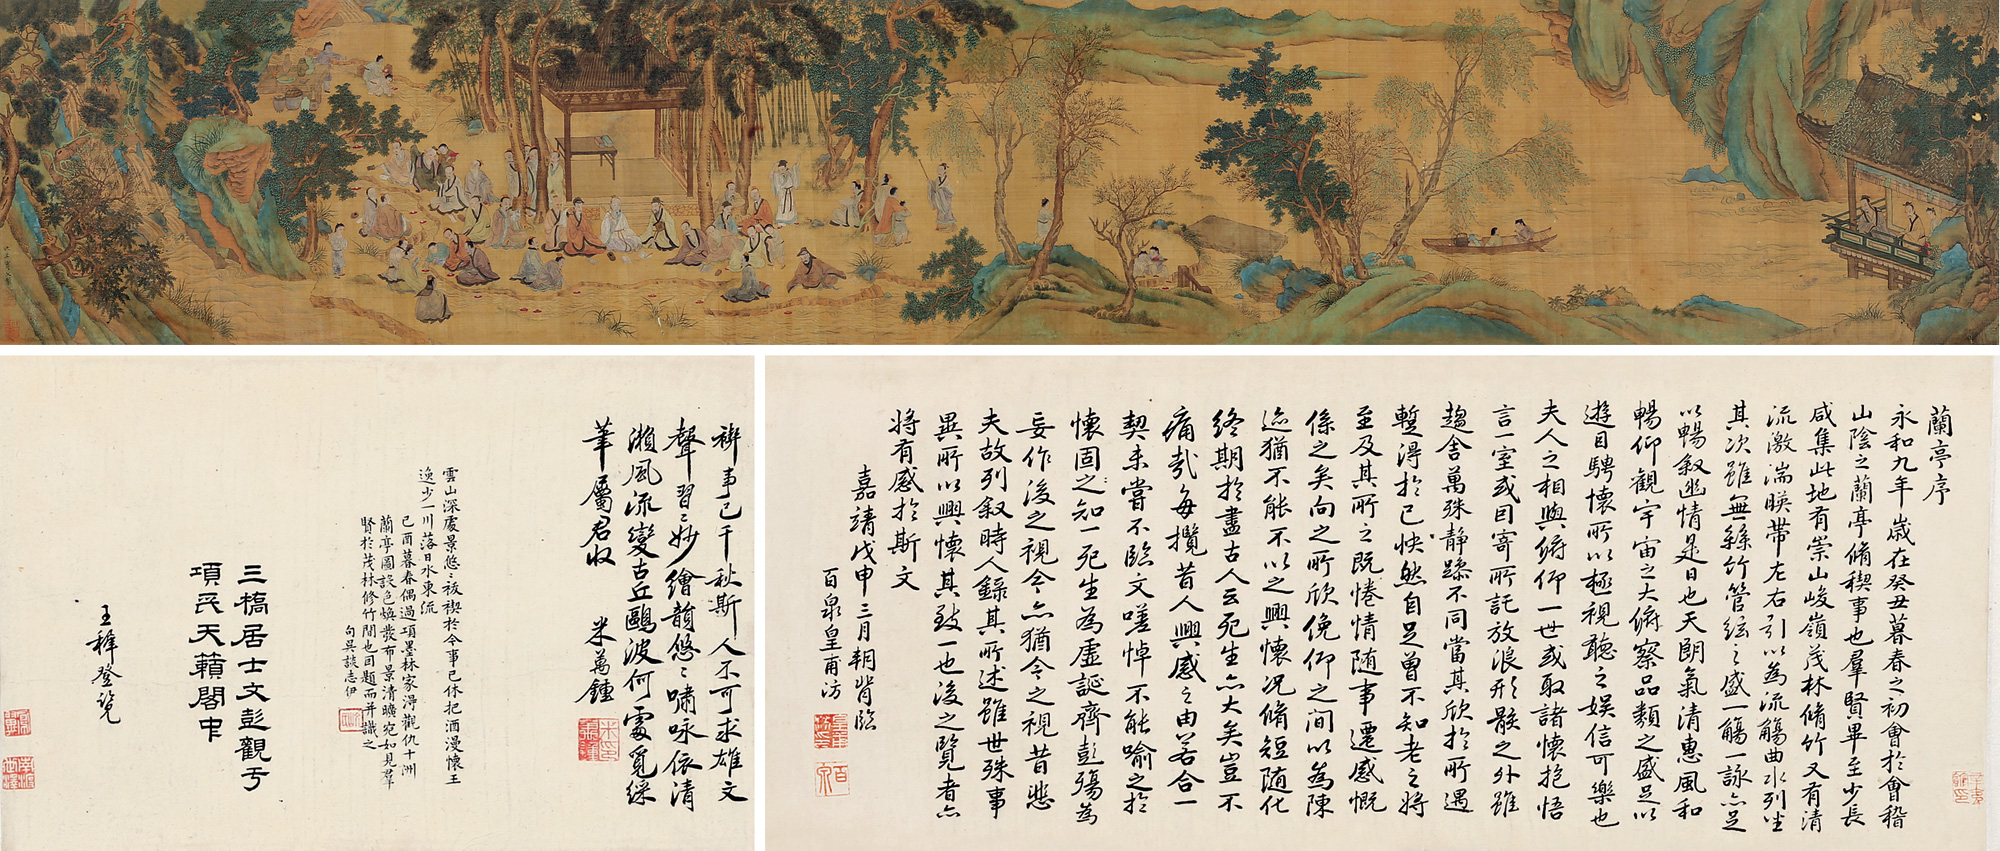 蘭亭序
永和九年歲在癸丑暮春之初會於會稽
山陰之蘭亭脩稧事也羣賢畢至少長
咸集此地有崇山峻嶺茂林脩竹又有清
流激湍暎帶左右引以為流觴曲水列坐
其次雖無絲竹管絃之盛一觴一詠亦足
以暢敘幽情是日也天朗氣清惠風和
暢仰觀宇宙之大俯察品類之盛足以
遊目騁懷所以極視聽之娛信可樂也
夫人之相與俯仰一世或取諸懷抱悟
言一室或因寄所託放浪形骸之外雖
趨舍萬殊靜躁不同當其欣於所遇
暫得於己快然自足曾不知老之將
至及其所之既惓情隨事遷感慨
係之矣向之所欣俛仰之間以為陳
迹猶不能不以之興懷況脩短隨化
終期於盡古人云死生亦大矣豈不
痛哉每攬昔人興感之由若合一
契未嘗不臨文嗟悼不能喻之於
懷固之知一死生為虛誕齊彭殤為
妄作後之視今亦猶今之視昔悲
夫故列敘時人錄其所述雖世殊事
異所以興懷其致一也後之覽者亦
將有感於斯文
嘉靖戊申三月朝背臨
百泉皇甫汸
禊事已千秋斯人不可求雄文
聲習〻妙繪韻悠〻嘯咏依清
瀨風流變古丘鷗波何處覓綵
筆屬君收 米萬鍾
雲山深處景悠〻祓禊於今事已休把酒漫懷王
逸少一川落日水東流
己酉暮春偶過項墨林家得觀仇十洲
蘭亭圖設色煥發布景清曠宛如見羣
賢於茂林修竹間也因題而并識之
句吳談志伊
三橋居士文彭觀于
項氏天籟閣中
王穉登覽